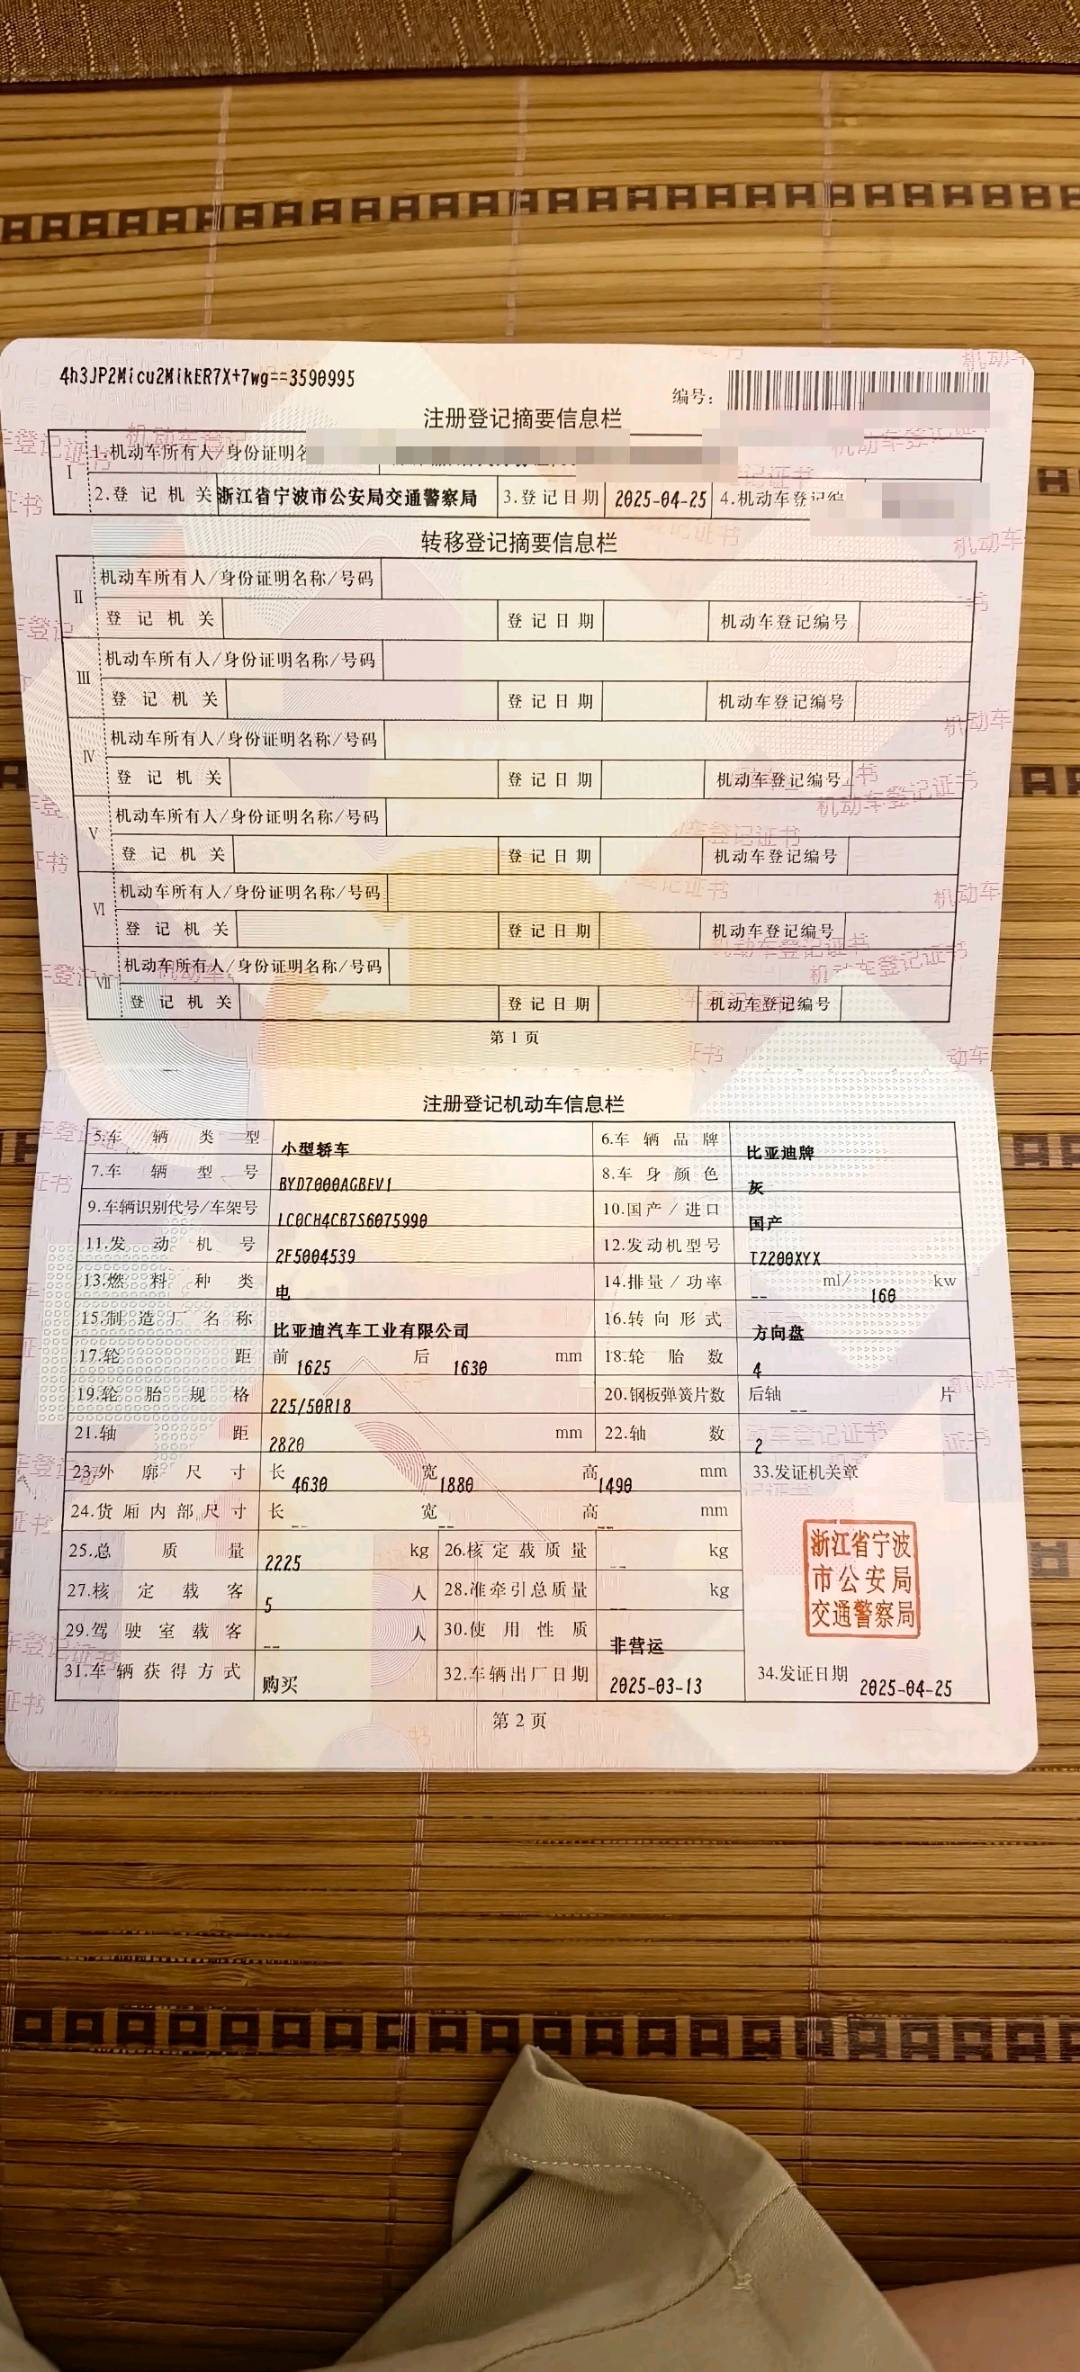 4h3JP2Micu2MikER7X+7wg==3590995
编号:
注册登记摘要信息栏
I 1.机动车所有人/身份证明名
2.登记机关 浙江省宁波市公安局交通警察局 3.登记日期 2025-04-25 4.机动车登记编
转移登记摘要信息栏
II 机动车所有人/身份证明名称/号码
登记机关 登记日期 机动车登记编号
III 机动车所有人/身份证明名称/号码
登记机关 登记日期 机动车登记编号
IV 机动车所有人/身份证明名称/号码
登记机关 登记日期 机动车登记编号
V 机动车所有人/身份证明名称/号码
登记机关 登记日期 机动车登记编号
VI 机动车所有人/身份证明名称/号码
登记机关 登记日期 机动车登记编号
VII 机动车所有人/身份证明名称/号码
登记机关 登记日期 机动车登记编号
第1页
注册登记机动车信息栏
5.车辆类型 小型轿车 6.车辆品牌 比亚迪牌
7.车辆型号 BYD7000AGBEV1 8.车身颜色 灰
9.车辆识别代号/车架号 LC0CH4CB7S6075990 10.国产/进口 国产
11.发动机号 2F5004539 12.发动机型号 TZ200XYX
13.燃料种类 电 14.排量/功率 -- ml/ 160 kw
15.制造厂名称 比亚迪汽车工业有限公司 16.转向形式 方向盘
17.轮距 前 1625 后 1630 mm 18.轮胎数 4
19.轮胎规格 225/50R18 20.钢板弹簧片数 后轴 -- 片
21.轴距 2820 mm 22.轴数 2
23.外廓尺寸 长 4630 宽 1880 高 1490 mm 33.发证机关章
24.货厢内部尺寸 长 -- 宽 -- 高 -- mm
25.总质量 2225 kg 26.核定载质量 -- kg
浙江省宁波
市公安局
交通警察局
27.核定载客 5 人 28.准牵引总质量 -- kg
29.驾驶室载客 -- 人 30.使用性质 非营运
31.车辆获得方式 购买 32.车辆出厂日期 2025-03-13 34.发证日期 2025-04-25
第2页